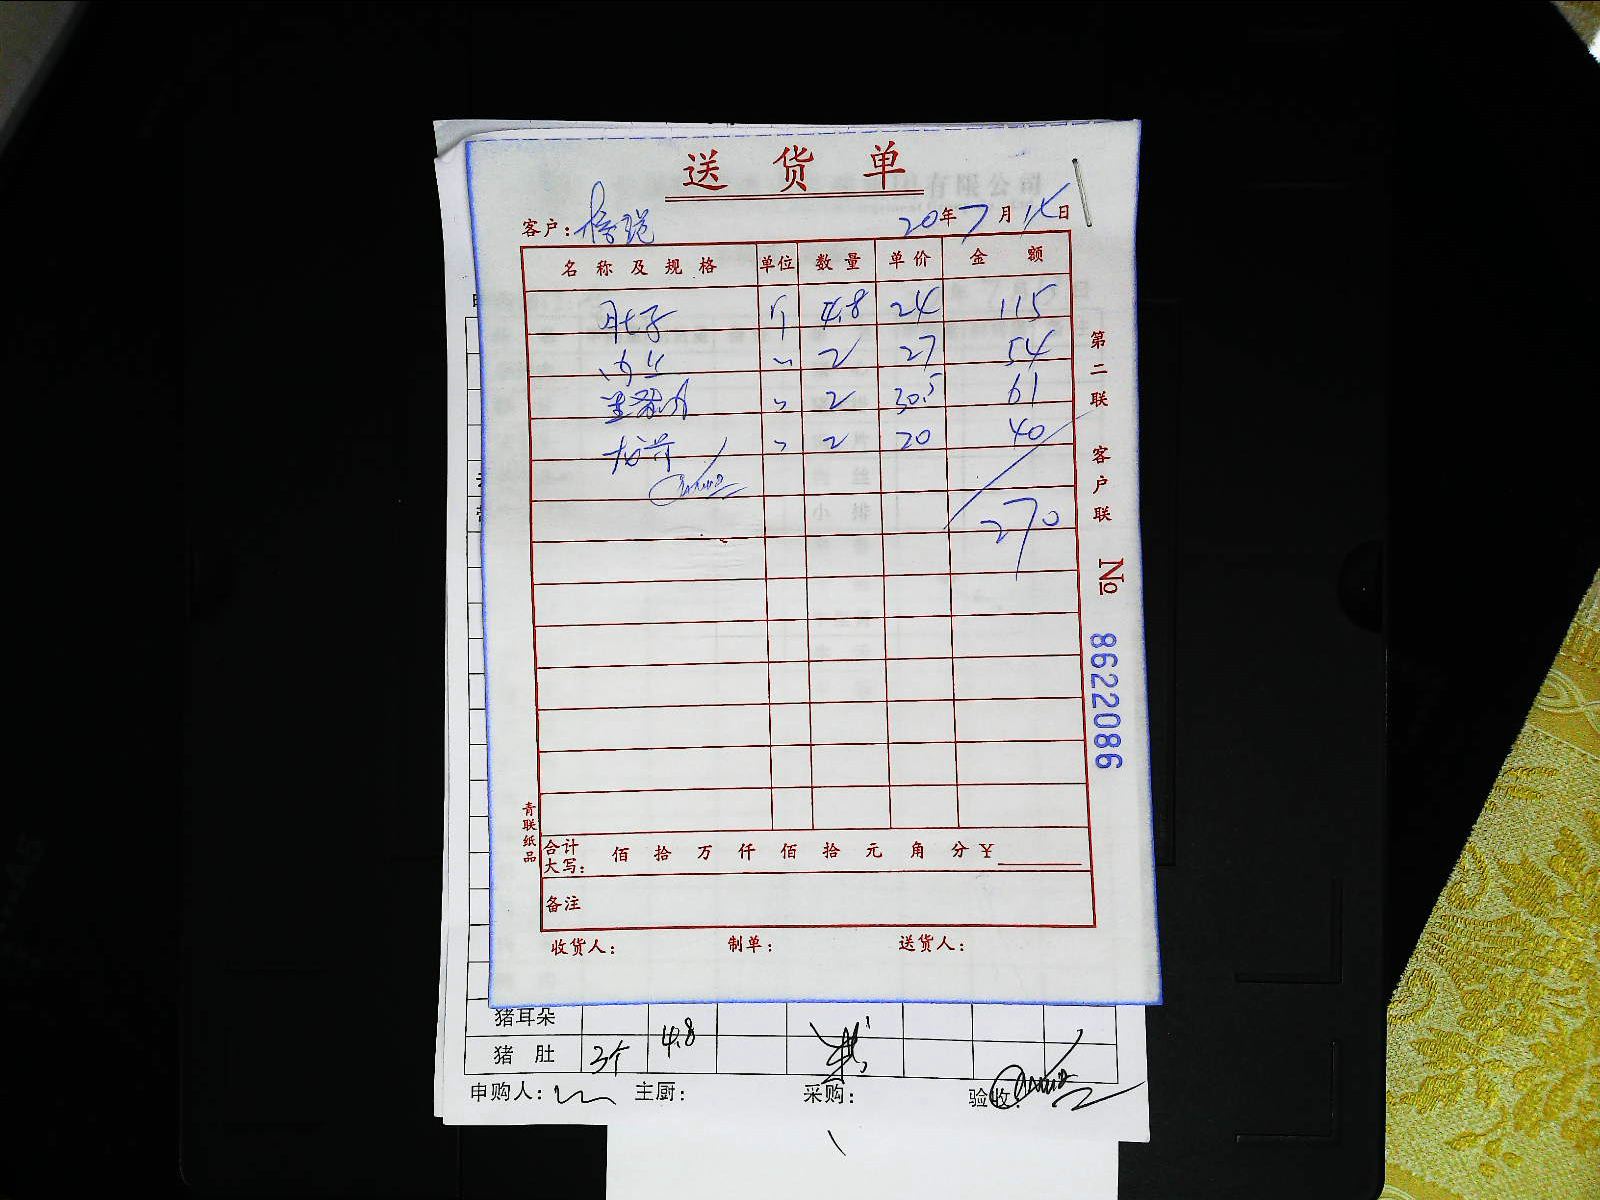 送货单
客户： 20年7月15日
名称及规格 单位 数量 单价 金额
肚子 个 4.8 24 115
肉丝 〃 2 27 54
〃 2 30.5 61
龙骨 〃 2 20 40
270
合计大写： 佰 拾 万 仟 佰 拾 元 角 分 ￥
备注
收货人： 制单： 送货人：
第二联 客户联
№ 8622086
青联纸品
猪耳朵
猪肚 3个 4.8
申购人： 主厨： 采购： 验收：